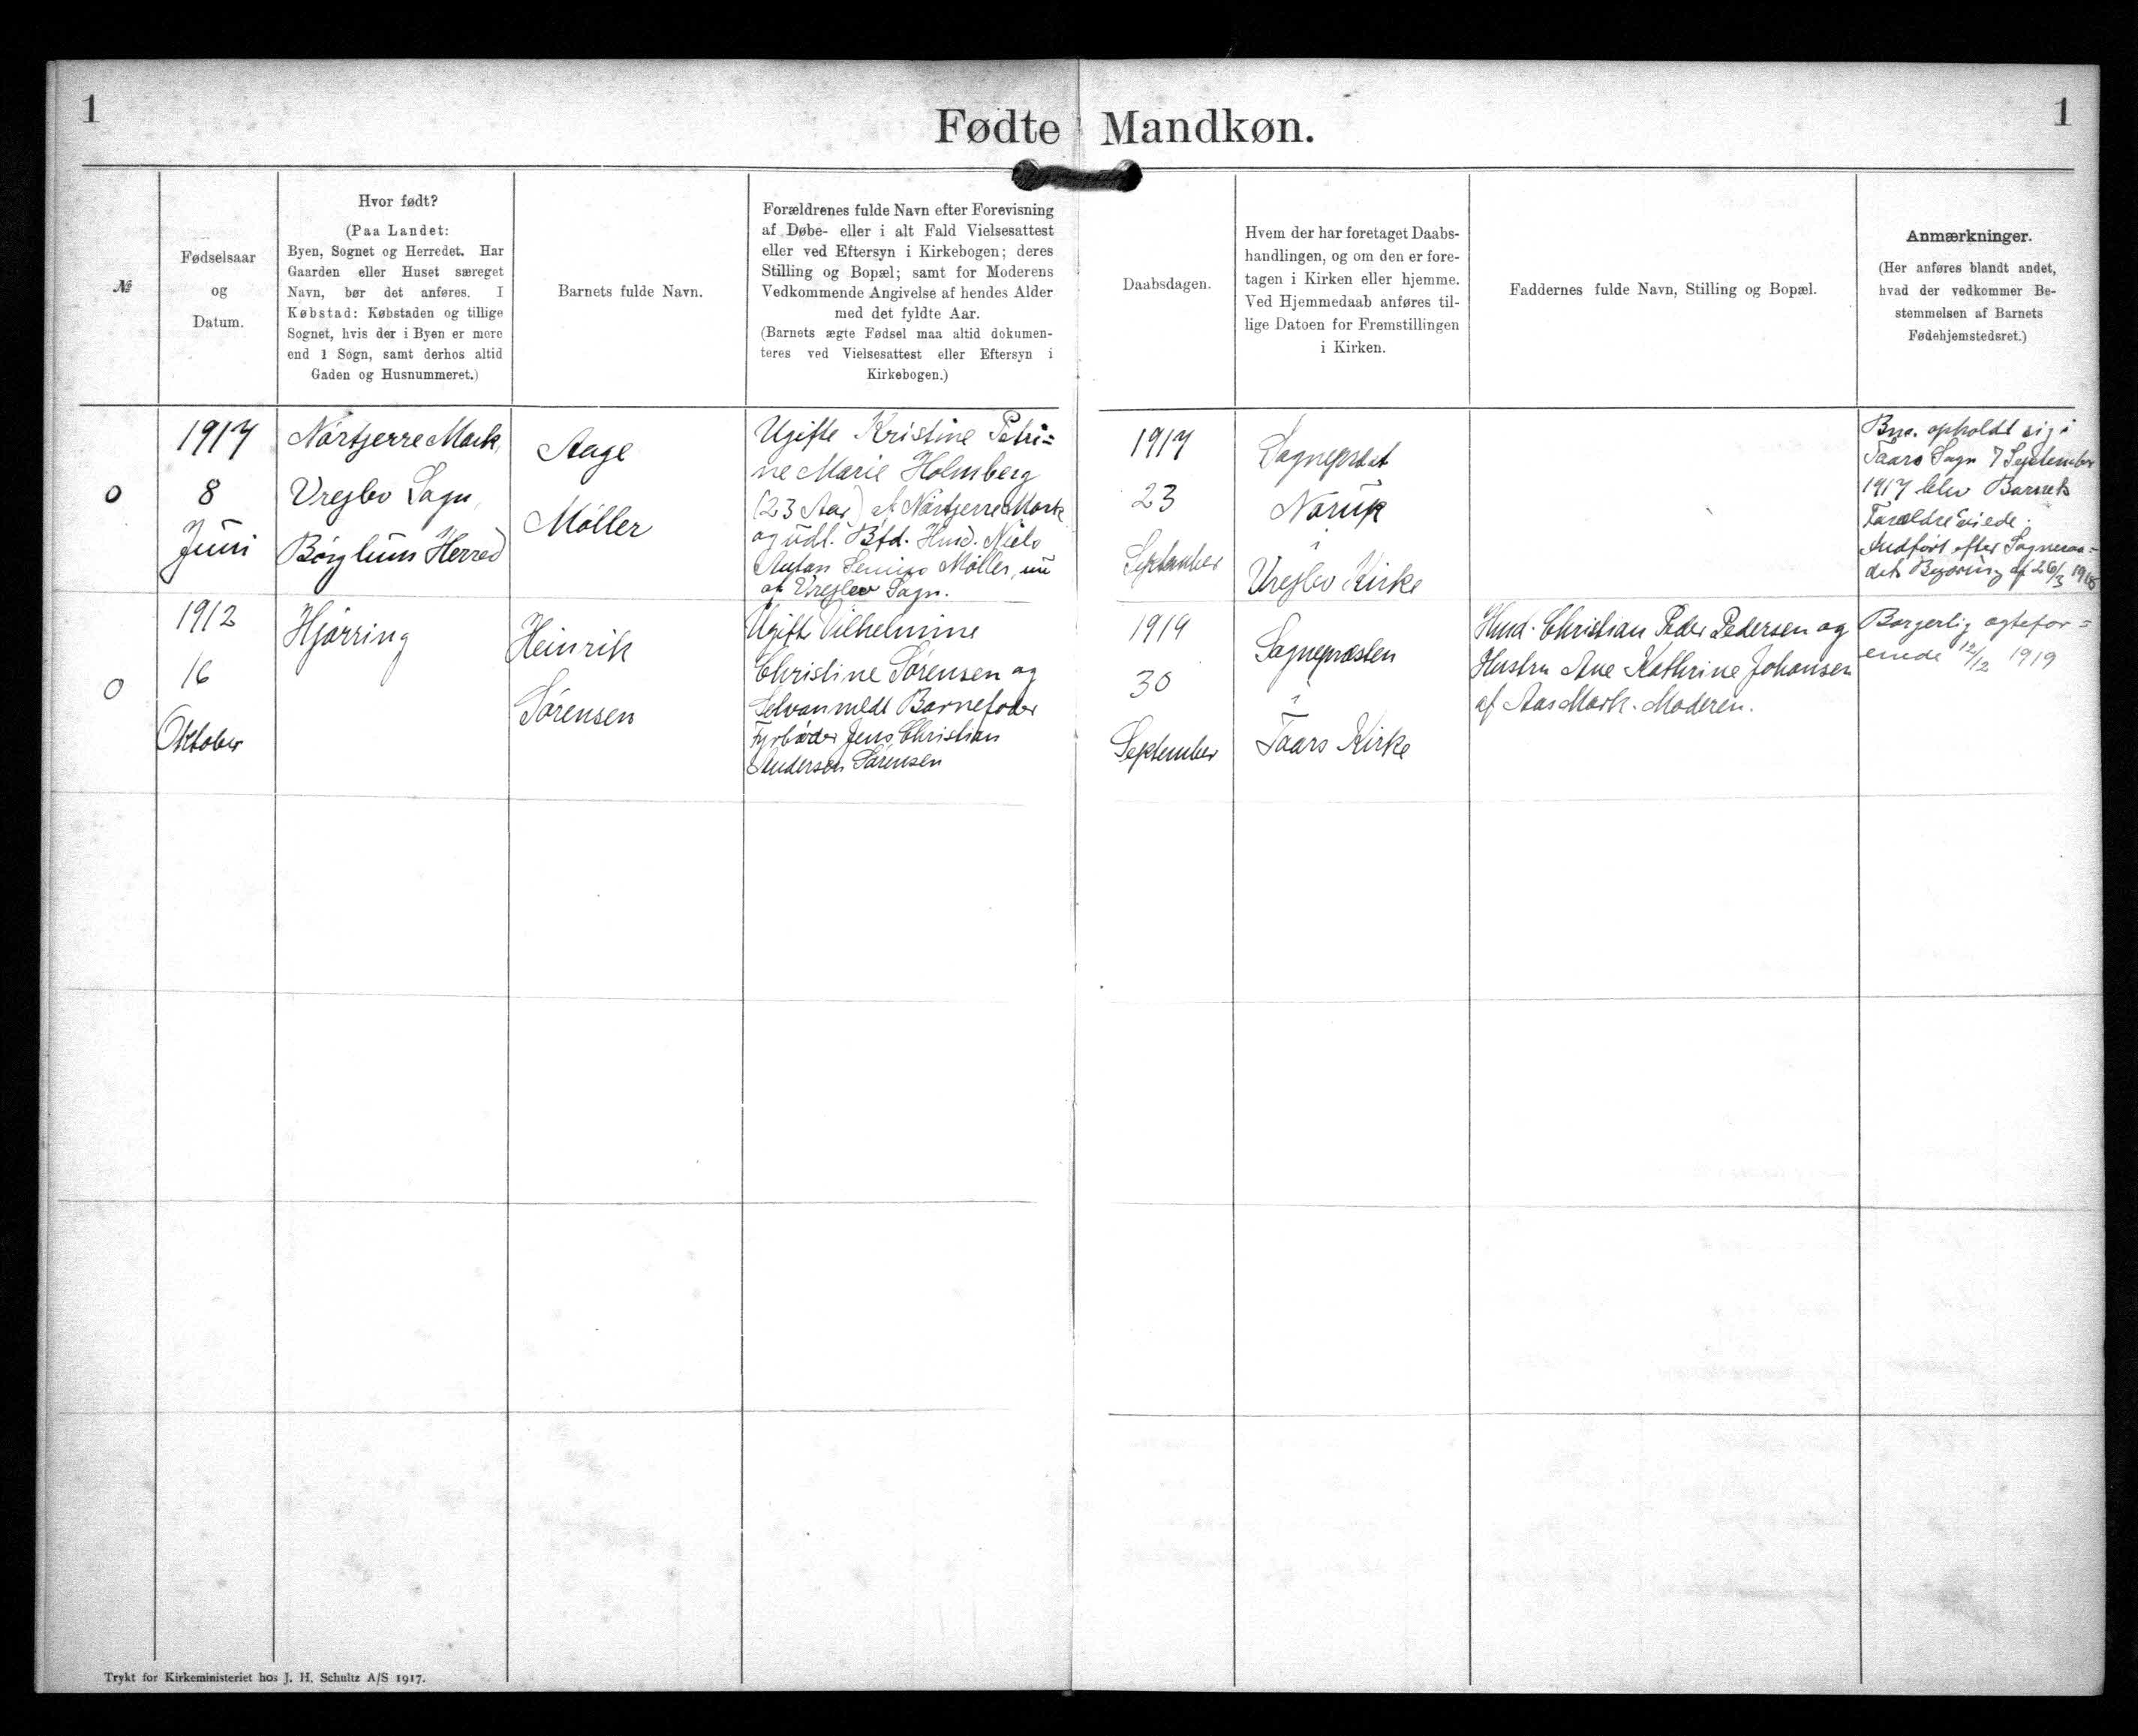 1
Fødte Mandkøn.
1
№
Fødselsaar
og
Datum.
Hvor født?
(Paa Landet:
Byen, Sognet og Herredet. Har
Gaarden eller Huset særeget
Navn, bør det anføres. I
Købstad: Købstaden og tillige
Sognet, hvis der i Byen er mere
end 1 Sogn, samt derhos altid
Gaden og Husnummeret.)
Barnets fulde Navn.
Forældrenes fulde Navn efter Forevisning
af Døbe- eller i alt Fald Vielsesattest
eller ved Eftersyn i Kirkebogen; deres
Stilling og Bopæl; samt for Moderens
Vedkommende Angivelse af hendes Alder
med det fyldte Aar.
(Barnets ægte Fødsel maa altid dokumen-
teres ved Vielsesattest eller Eftersyn i
Kirkebogen.)
Daabsdagen.
Hvem der har foretaget Daabs-
handlingen, og om den er fore-
tagen i Kirken eller hjemme.
Ved Hjemmedaab anføres til-
lige Datoen for Fremstillingen
i Kirken.
Faddernes fulde Navn, Stilling og Bopæl.
Anmærkninger.
(Her anføres blandt andet,
hvad der vedkommer Be-
stemmelsen af Barnets
Fødehjemstedsret.)
0
1917
8
Juni
Nørtjerre Mark,
Vrejlev Sogn,
Børglum Herred
Aage
Møller
Ugifte Kristine Petri=
ne Marie Holmberg
(23 Aar) af Nørtjerre Mark
og udl. Bfd. Husd. Niels
Anton Møller, nu
af Vrejlev Sogn.
1917
23
September
Sognepræst
i
Vrejlev Kirke
opholdt sig i
Taars Sogn 7 September
1917 blev Barnets
Forældre viede.
Indført efter Sogneraa=
dets Begæring af 26/3 1918
0
1912
16
Oktober
Hjørring
Heinrik
Sørensen
Ugift Vilhelmine
Christine Sørensen og
Selvanmeldt Barnefader
Fyrbøder Jens Christian
Anderson Sørensen
1919
30
September
Sognepræsten
i
Taars Kirke
Husd. Christian Peder Pedersen og
Hustru Ane Kathrine Johansen
af Aas Mark. Moderen.
Borgerlig ægtefor=
enede 12/2 1919
Trykt for Kirkeministeriet hos J. H. Schultz A/S 1917.